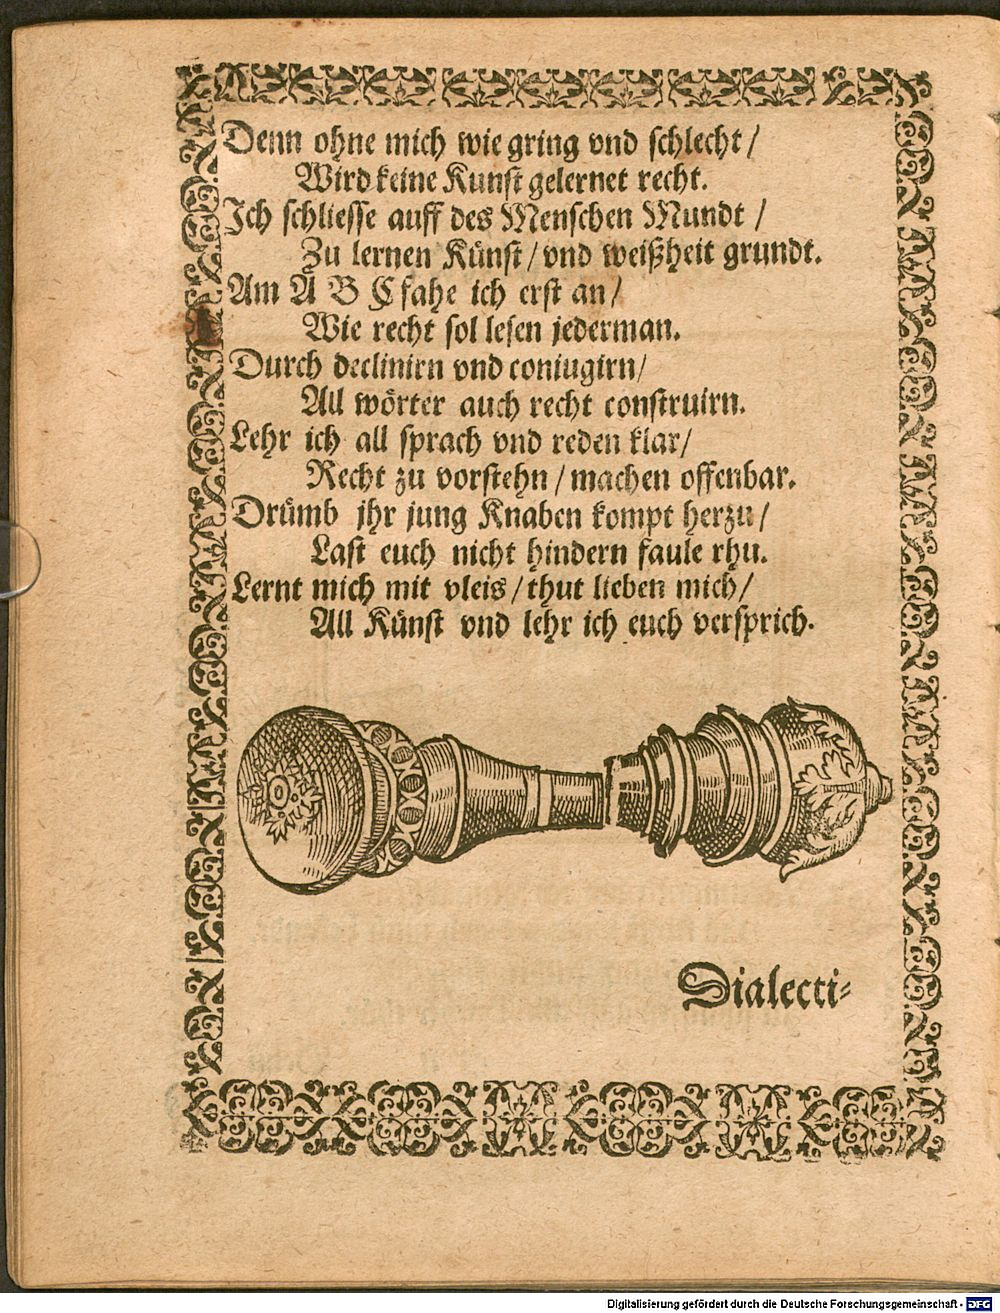 Denn ohne mich wie gring vnd schlecht/
Wird keine Kunst gelernet recht.
Ich schliesse auff des Menschen Mundt /
Zu lernen Künst/ vnd weißheit grundt.
Am A B C fahe ich erst an/
Wie recht sol lesen jederman.
Durch declinirn vnd coniugirn/
All wörter auch recht construirn.
Lehr ich all sprach vnd reden klar/
Recht zu vorstehn/ machen offenbar.
Drümb jhr jung Knaben kompt herzu/
Last euch nicht hindern faule rhu.
Lernt mich mit vleis/ thut lieben mich/
All Künst vnd lehr ich euch versprich.
Dialecti-
Digitalisierung gefördert durch die Deutsche Forschungsgemeinschaft - DFG